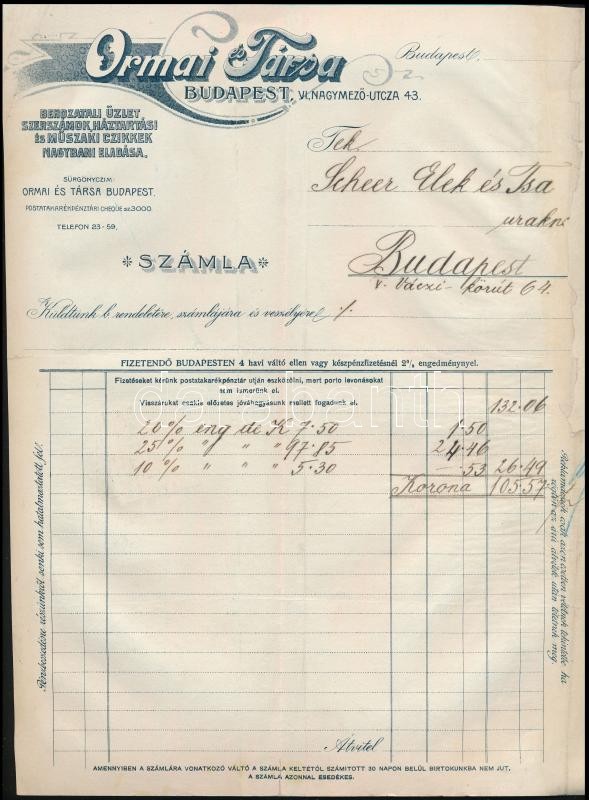 Ormai és Társa
BUDAPEST, VI., NAGYMEZŐ-UTCZA 43.
Budapest,
BEHOZATALI ÜZLET
SZERSZÁMOK, HÁZTARTÁSI
és MŰSZAKI CZIKKEK
NAGYBANI ELADÁSA.
SÜRGÖNYCZIM:
ORMAI ÉS TÁRSA BUDAPEST.
POSTATAKARÉKPÉNZTÁRI CHEQUE SZ. 3000.
TELEFON 23-59.
Tek.
Scheer Elek és Tsa
urakn
Budapest
v. Váczi-körút 64.
SZÁMLA
Küldtünk b. rendeletére, számlájára és veszélyére
FIZETENDŐ BUDAPESTEN 4 havi váltó ellen vagy készpénzfizetésnél 2% engedménynyel.
Fizetéseket kérünk postatakarékpénztár utján eszközölni, mert porto levonásokat
nem ismerünk el.
Visszárukat csakis előzetes jóváhagyásunk mellett fogadunk el.
132.06
20% eng de K 7.50 1.50
25% " " " 97.85 24.46
10% " " " 5.30 -.53 26.49
Korona 105.57
Pénzbeszedésre részünkről senki sem hatalmaztatott fel.
Reklamátiók csak azon esetben vétetnek tekintetbe ha
azok az áru átvétele után tétetnek meg.
Átvitel
AMENNYIBEN A SZÁMLÁRA VONATKOZÓ VÁLTÓ A SZÁMLA KELTÉTŐL SZÁMITOTT 30 NAPON BELÜL BIRTOKUNKBA NEM JUT,
A SZÁMLA AZONNAL ESEDÉKES.